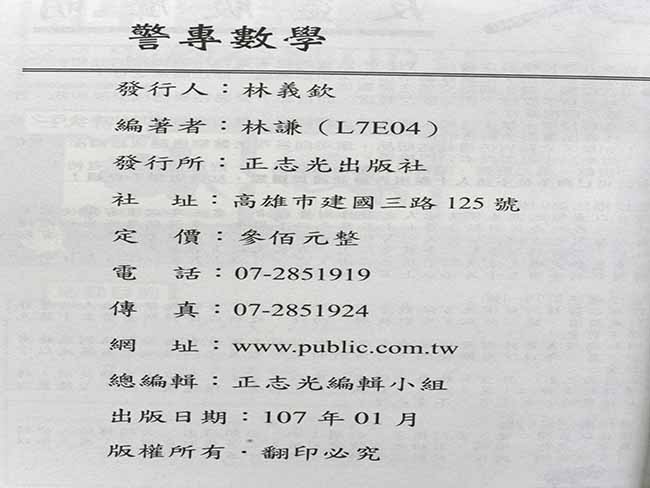 警專數學
發行人：林義欽
編著者：林謙（L7E04）
發行所：正志光出版社
社　址：高雄市建國三路 125 號
定　價：參佰元整
電　話：07-2851919
傳　真：07-2851924
網　址：www.public.com.tw
總編輯：正志光編輯小組
出版日期：107 年 01 月
版權所有·翻印必究